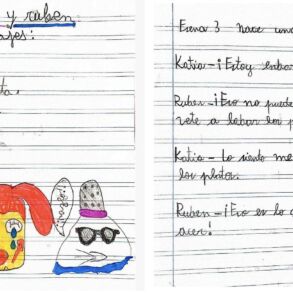 y ruben
ajes:
ta,
Esena 3 nace una
Katia - ¡Estoy enbar
Ruben - ¡Eso no puede
vete a labar los p
Katia - Lo siento me
los platos.
Ruben - ¡Eso es lo
acer!